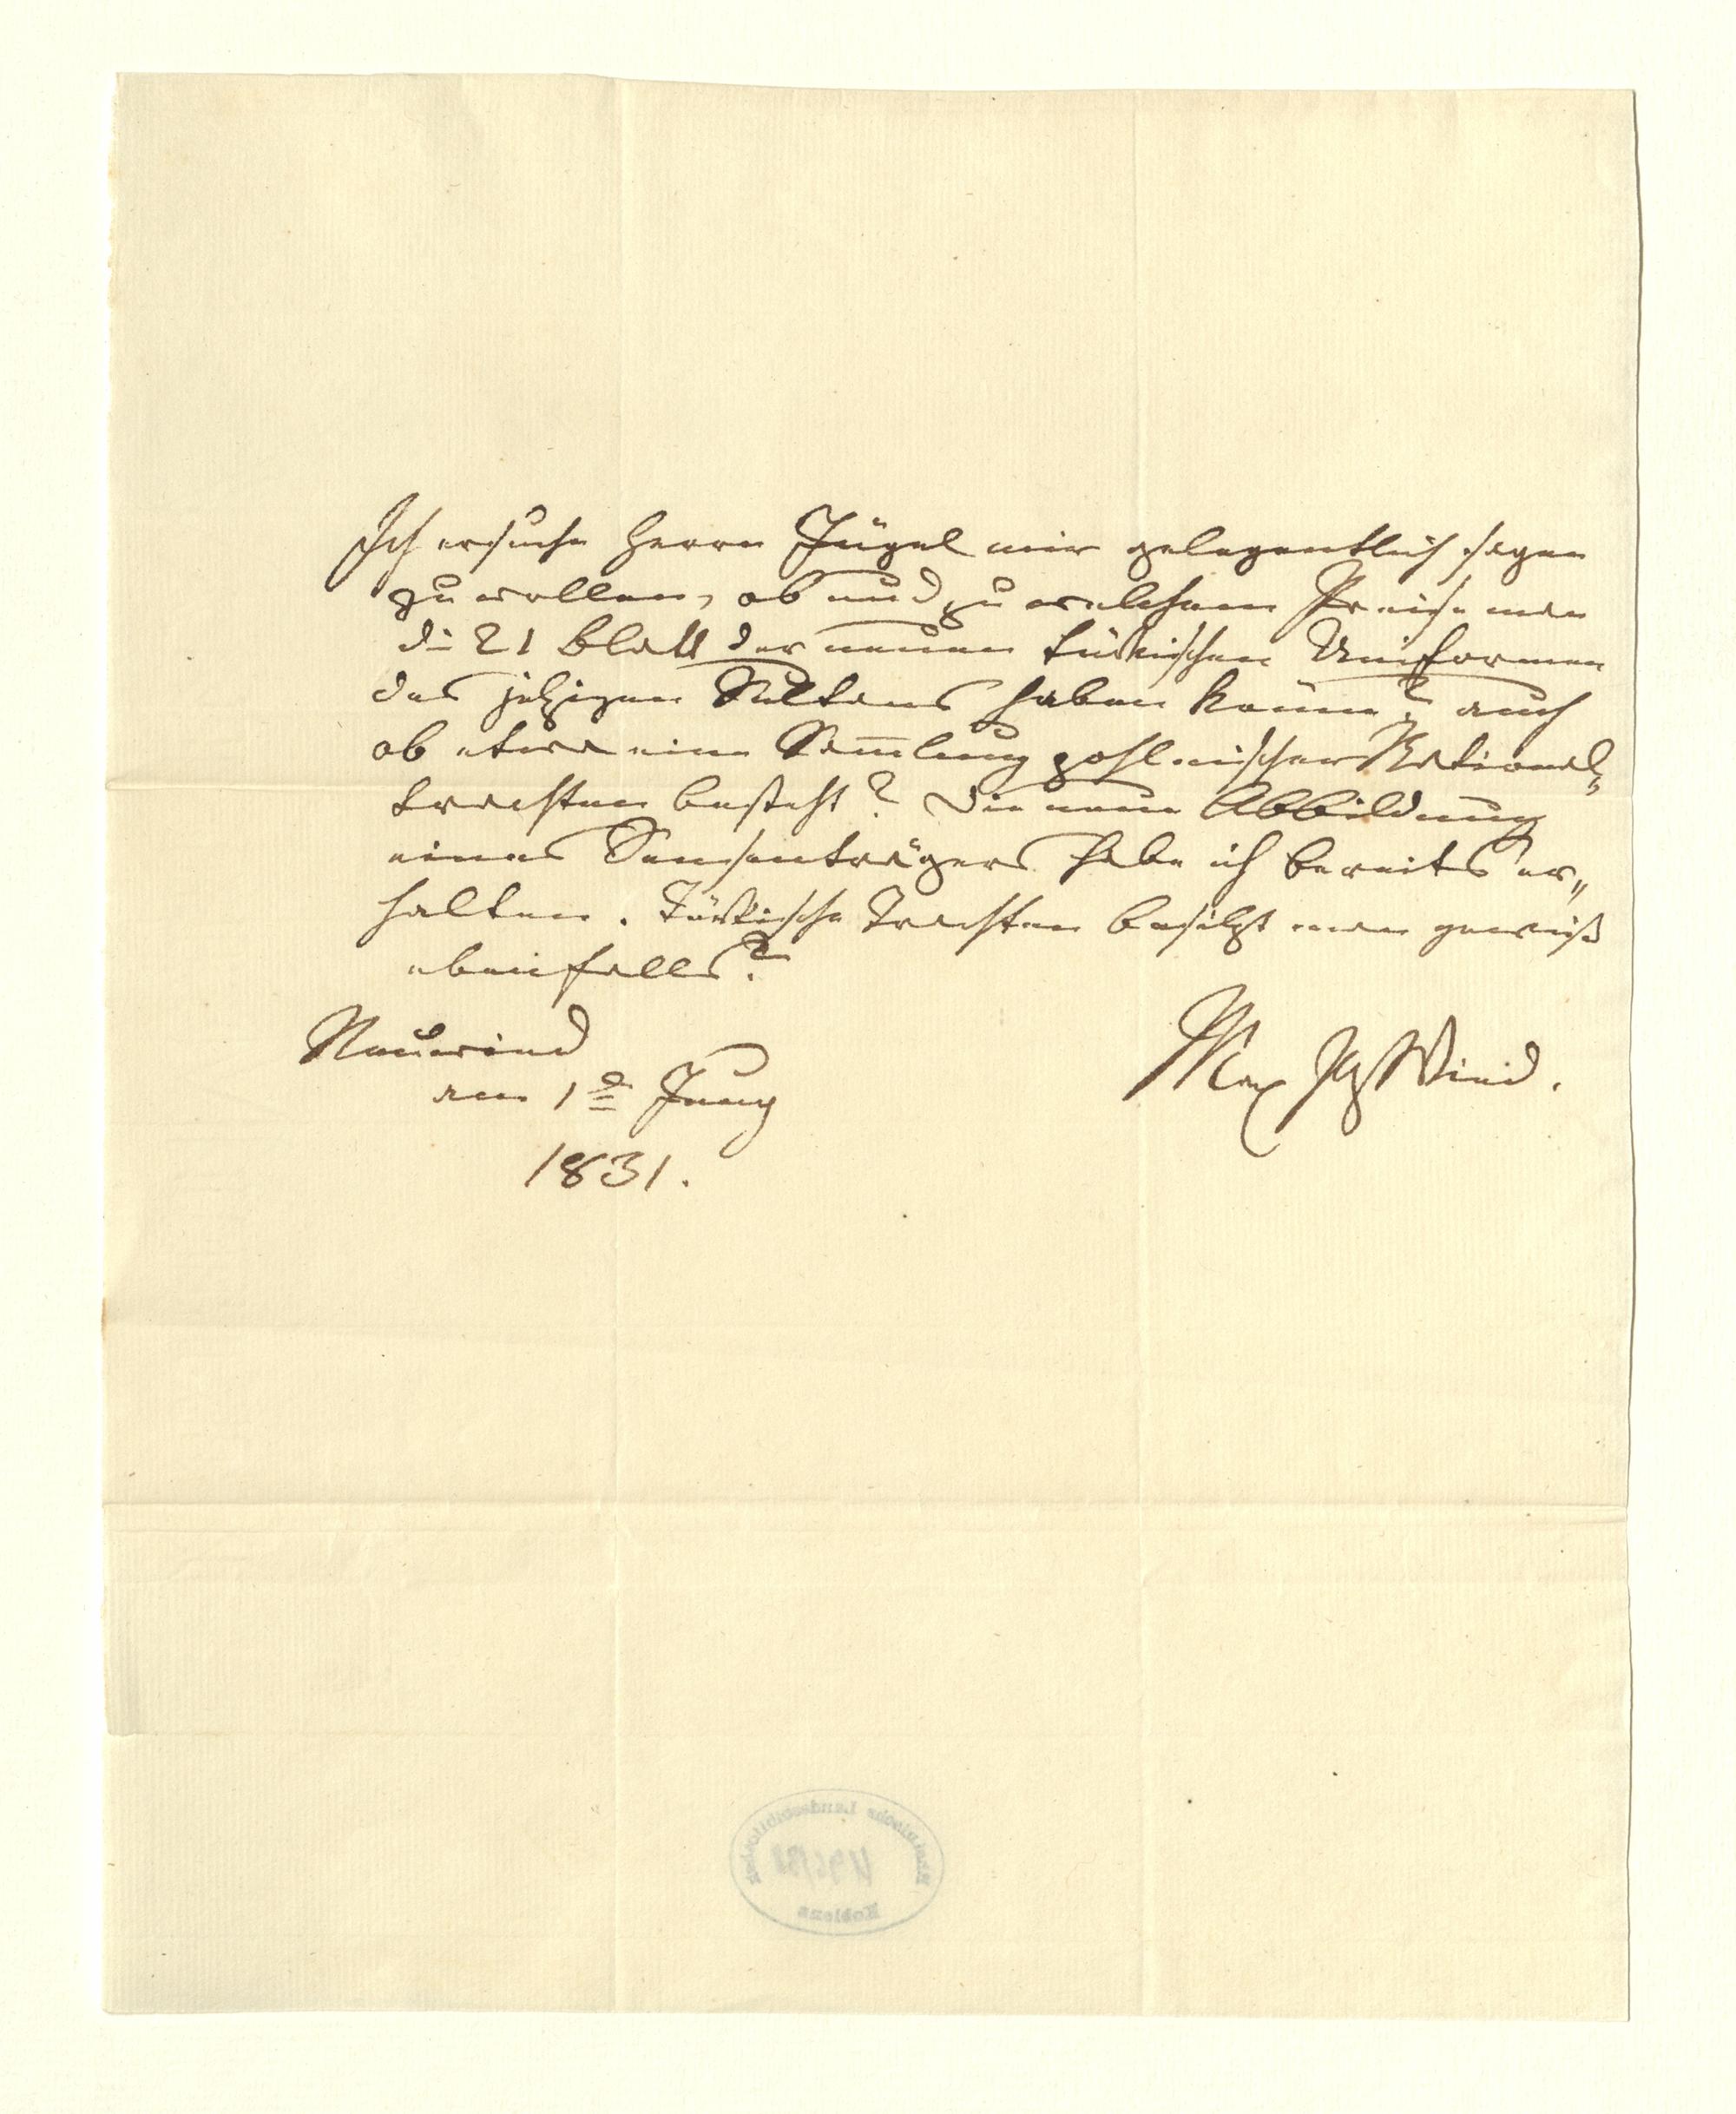 Ich ersuche Herrn Jügel mir gelegentlich sagen
zu wollen, ob und zu welchem Preise man
die 21 Blatt der neuen türkischen Uniformen
des jetzigen Sultans haben kann? auch
ob etwa eine Sam̅lung pohlnischer National„
trachten besteht? Die neue Abbildung
eines Sensenträgers habe ich bereits er„
halten. Türkische Trachten besitzt man gewiß
ebenfalls?
Neuwied
am 1ten Juny
1831.
Max Pz Wied.
Rheinische Landesbibliothek
Koblenz